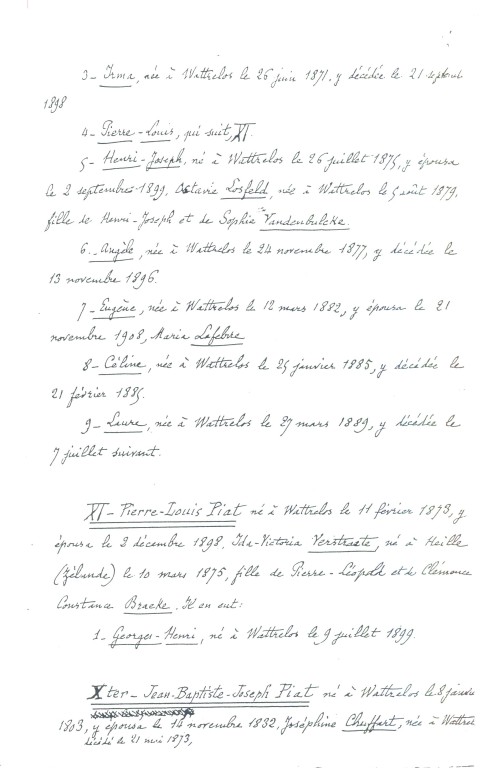 3_ Irma, née à Wattrelos le 26 juin 1871, y décédée le 21 septembre
1898
4_ Pierre-Louis, qui suit, XI.
5_ Henri-Joseph, né à Wattrelos le 26 juillet 1875, y épousa
le 2 septembre 1899, Octavie Losfeld, née à Wattrelos le 5 août 1879,
fille de Henri-Joseph et de Sophie Vandenbulcke.
6_ Angèle, née à Wattrelos le 24 novembre 1877, y décédée le
13 novembre 1896.
7_ Eugène, né à Wattrelos le 12 mars 1882, y épousa le 21
novembre 1908, Maria Lefebvre
8_ Céline, née à Wattrelos le 25 janvier 1885, y décédée le
21 février 1885.
9_ Laure, née à Wattrelos le 27 mars 1889, y décédée le
7 juillet suivant.
XI_ Pierre-Louis Piat né à Wattrelos le 11 février 1873, y
épousa le 2 décembre 1898, Ida-Victoria Verstraete, né à Heille
(Zélande) le 10 mars 1875, fille de Pierre-Léopold et de Clémence
Constance Bracke. Il en eut:
1_ Georges-Henri, né à Wattrelos le 9 juillet 1899.
Xter_ Jean-Baptiste-Joseph Piat né à Wattrelos le 8 janvier
1803, y épousa le 14 novembre 1832, Joséphine Chuffart, née à Wattrelos
décédé le 21 mai 1873,